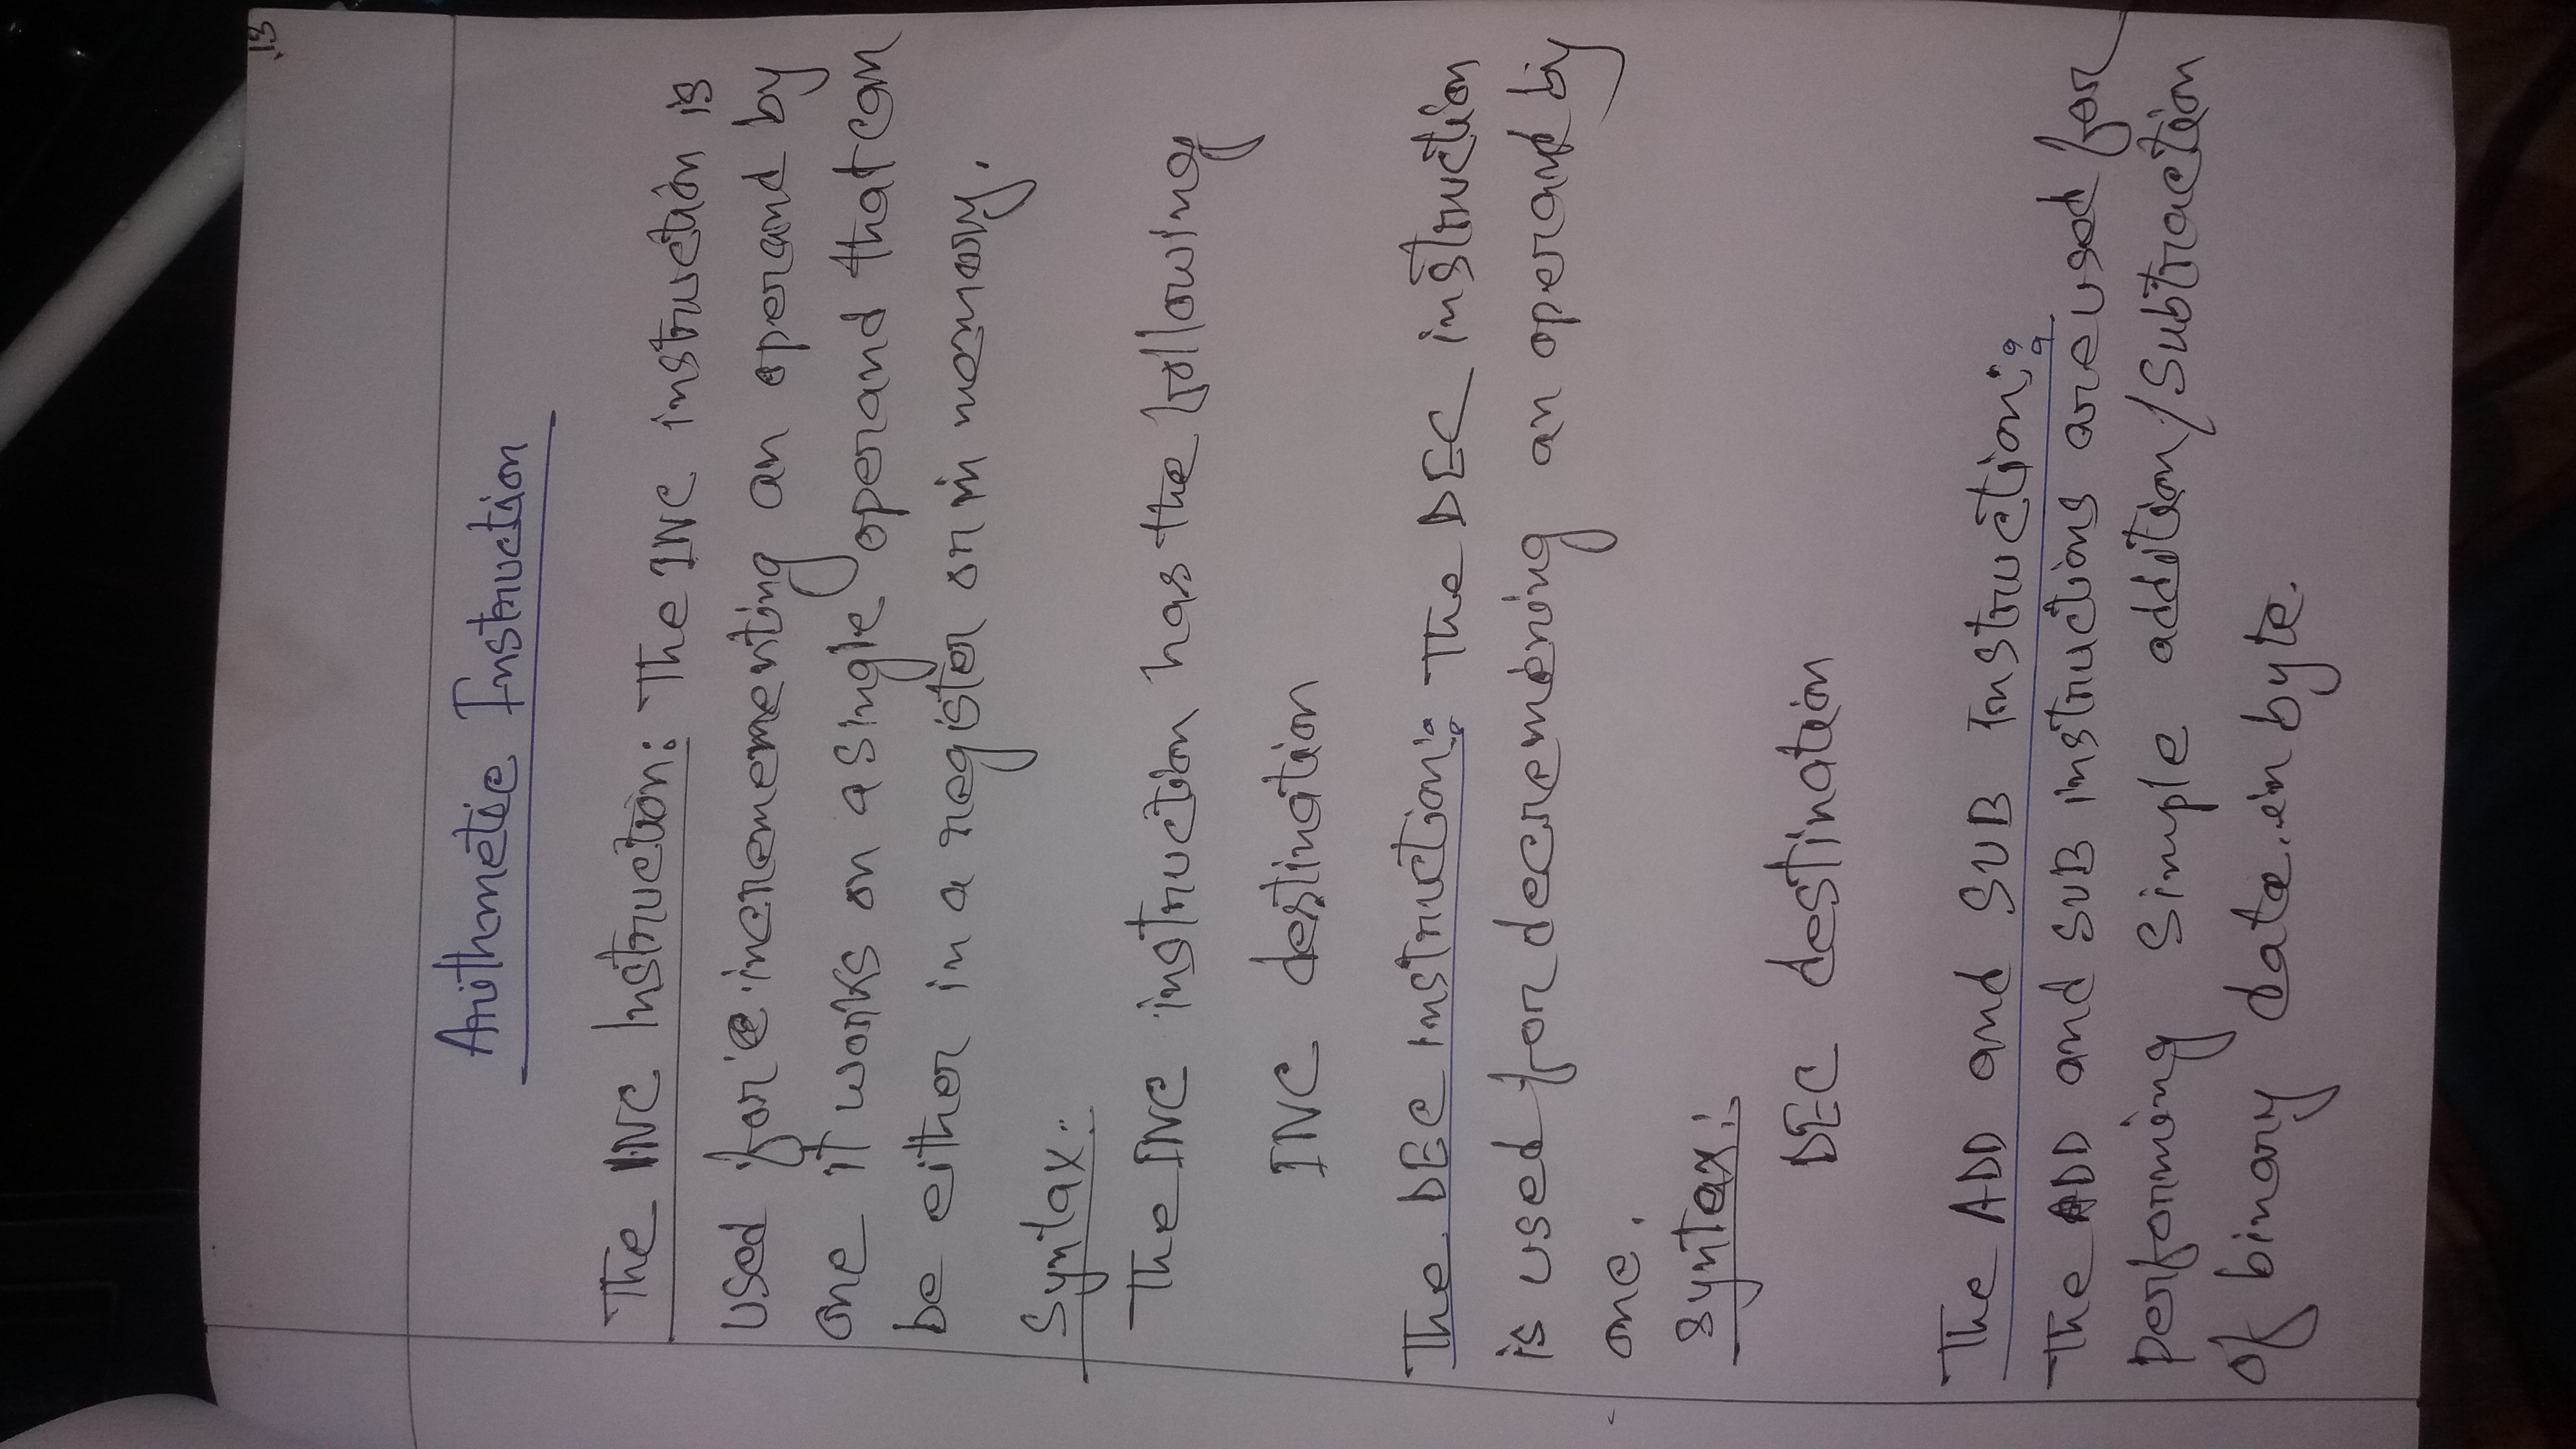 13
Arithmetic Instruction
The INC Instruction: The INC instruction is
used for incremementing an operand by
one it works on a single operand that can
be either in a register or in memory.
Syntax:
The INC instruction has the following
INC destination
The DEC instruction: The DEC instruction
is used for decremening an operand by
one.
Syntax:
DEC destination
The ADD and SUB Instruction:
The ADD and SUB instructions are used for
performing simple addition/Subtraction
of binary data in byte.